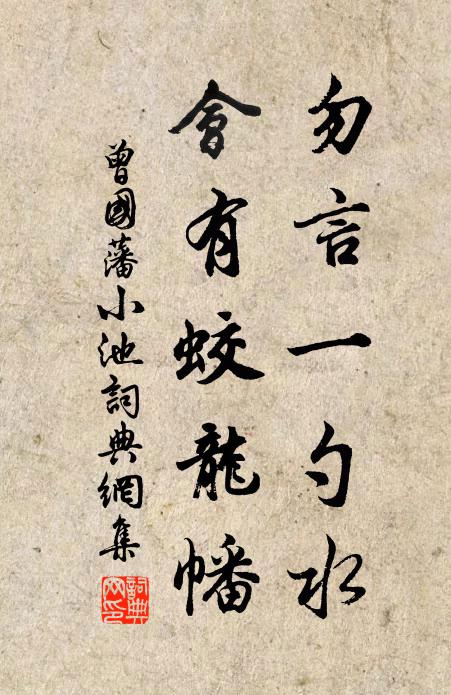 勿言一勺水
會有蛟龍幡
曾國藩小池詞典網集
詞典
网印